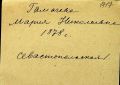 1917
Гамочко
Мария Николаевна
1878 г.
Севастопольская